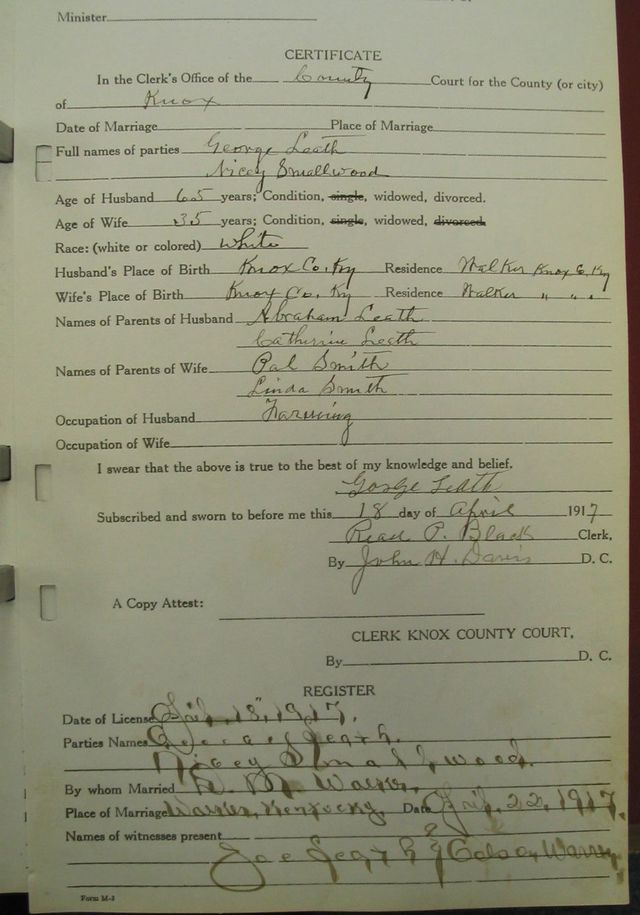 Minister
CERTIFICATE
In the Clerk's Office of the County Court for the County (or city)
of Knox
Date of Marriage Place of Marriage
Full names of parties George Leath
Nicey Smallwood
Age of Husband 65 years; Condition, single, widowed, divorced.
Age of Wife 35 years; Condition, single, widowed, divorced.
Race: (white or colored) White
Husband's Place of Birth Knox Co. Ky Residence Walker Knox Co. Ky
Wife's Place of Birth Knox Co. Ky Residence Walker " " "
Names of Parents of Husband Abraham Leath
Catherine Leath
Names of Parents of Wife Pal Smith
Linda Smith
Occupation of Husband Farming
Occupation of Wife
I swear that the above is true to the best of my knowledge and belief.
George Leath
Subscribed and sworn to before me this 18 day of April 1917
Read P. Black Clerk,
By John H. Davis D. C.
A Copy Attest:
CLERK KNOX COUNTY COURT,
By D. C.
REGISTER
Date of License 18, 1917.
Parties Names
Nicey Smallwood.
By whom Married
Place of Marriage Kentucky. Date 22, 1917.
Names of witnesses present
Joe
Form M-3